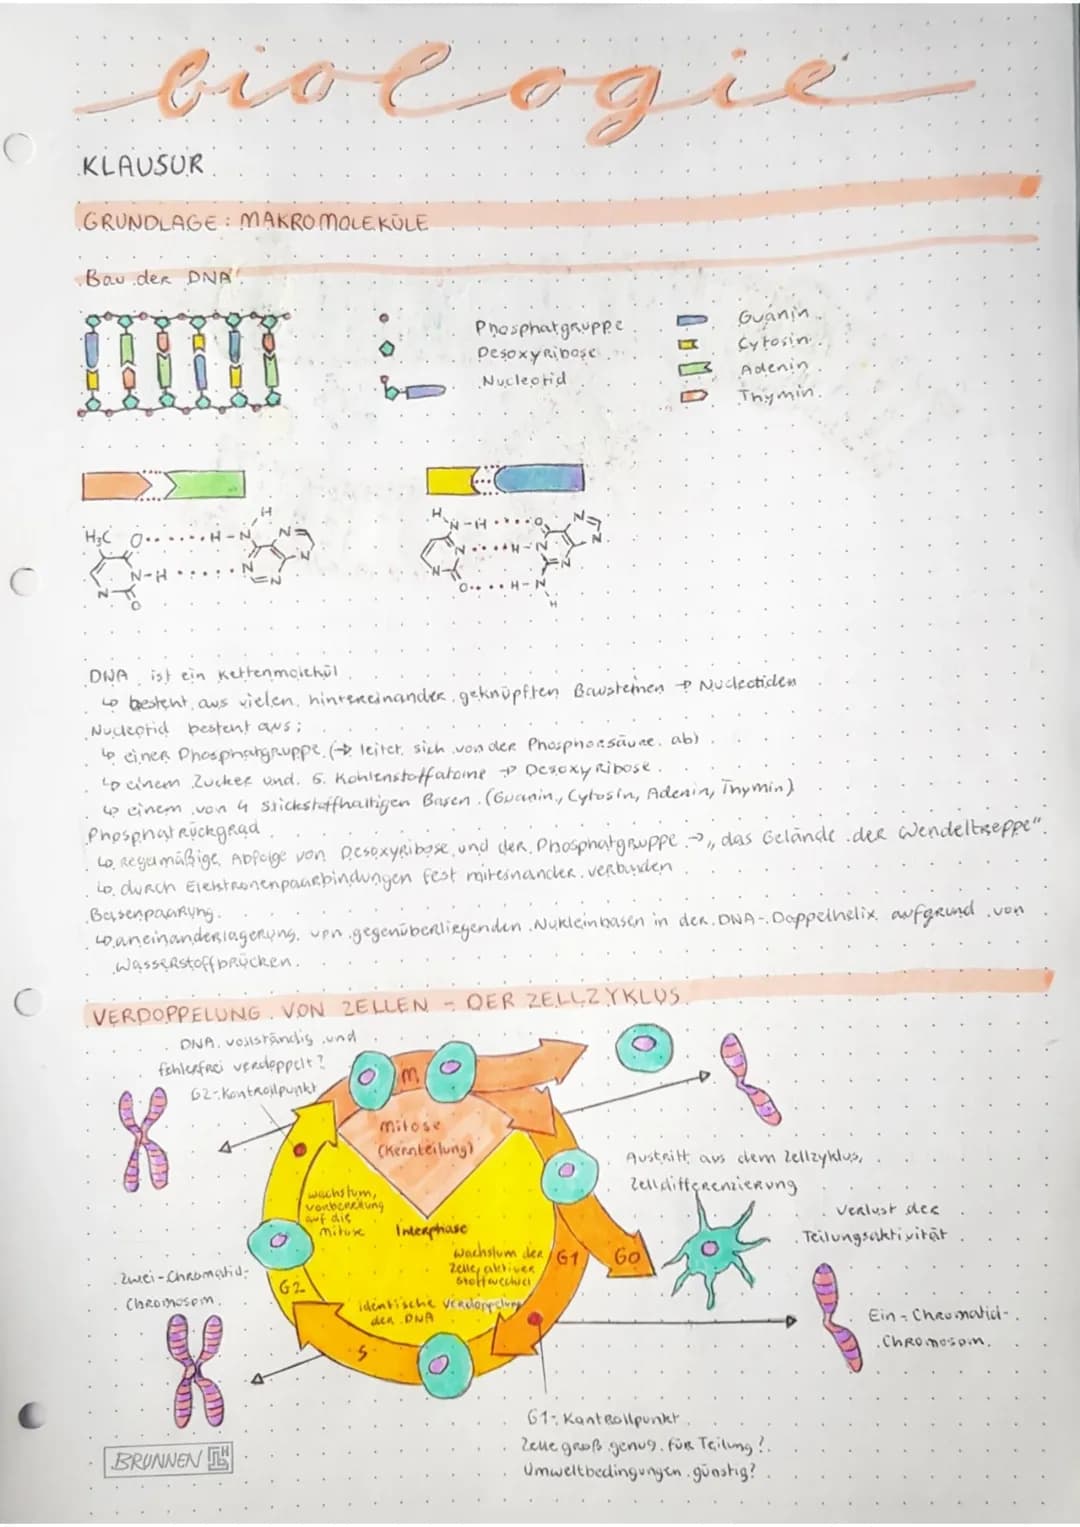 biologie
KLAUSUR
GRUNDLAGE: MAKROMOLEKÜLE
Bau der DNA:
Phosphatgruppe
Desoxyribose
Nucleotid
Guanin
Cytosin
Adenin
Thymin
H₃C O H-N H N N
N-H N N
N O
H N-H O N N
N H-N
N O H-N N
H
DNA ist ein Kettenmolekül
↳ besteht aus vielen hintereinander geknüpften Bausteinen → Nucleotiden
Nucleotid besteht aus:
↳ einer Phosphatgruppe (→ leitet sich von der Phosphorsäure ab)
↳ einem Zucker und 5 Kohlenstoffatome → Desoxyribose
↳ einem von 4 stickstoffhaltigen Basen (Guanin, Cytosin, Adenin, Thymin)
Phosphatrückgrad
↳ regelmäßige Abfolge von Desoxyribose und der Phosphatgruppe → „das Gelände der Wendeltreppe"
↳ durch Elektronenpaarbindungen fest miteinander verbunden
Basenpaarung
↳ aneinanderlagerung von gegenüberliegenden Nukleinbasen in der DNA-Doppelhelix aufgrund von
Wasserstoffbrücken.
VERDOPPELUNG VON ZELLEN - DER ZELLZYKLUS
DNA vollständig und
fehlerfrei verdoppelt?
G2-Kontrollpunkt
M
Mitose
(Kernteilung)
Wachstum,
Vorbereitung
auf die
Mitose
Interphase
Wachstum der
Zelle, aktiver
Stoffwechsel
identische Verdoppelung
der DNA
G1
G0
G2
S
Austritt aus dem Zellzyklus,
Zelldifferenzierung
Verlust der
Teilungsaktivität
Zwei-Chromatid-
Chromosom
Ein-Chromatid-
Chromosom
G1-Kontrollpunkt
Zelle groß genug für Teilung?
Umweltbedingungen günstig?
BRUNNEN